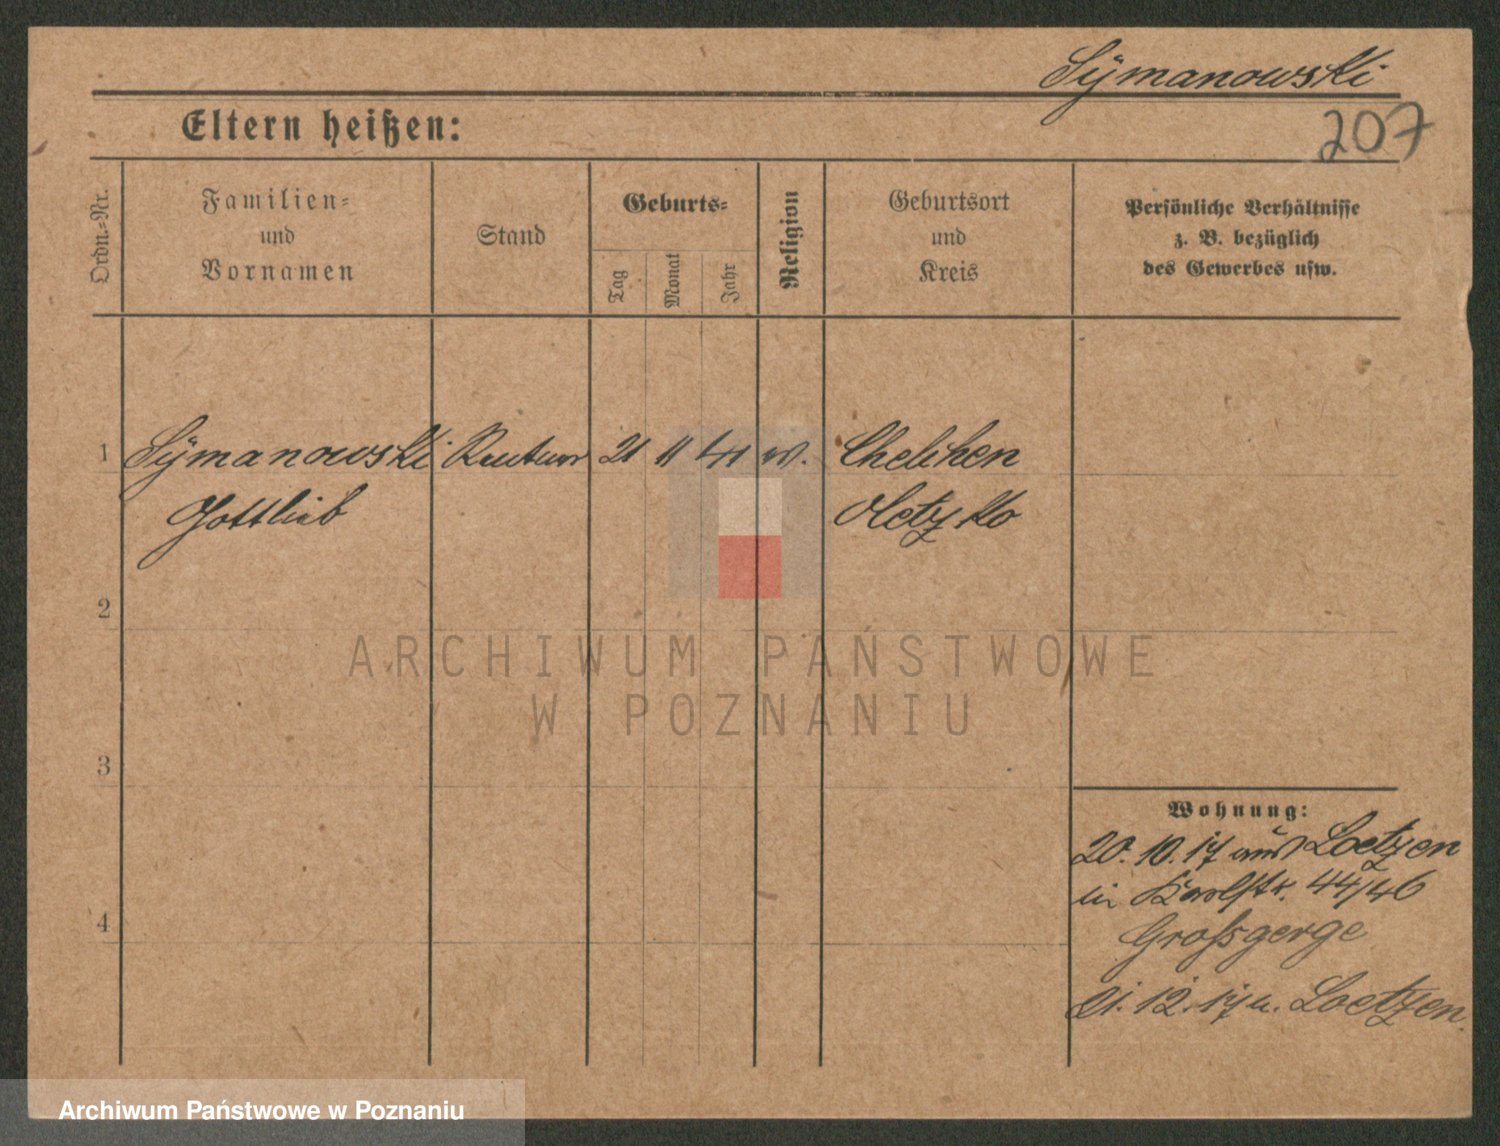 Symanowski
Eltern heißen:
207
Ordn.-Nr.
Familien-
und
Vornamen
Stand
Geburts-
Tag
Monat
Jahr
Religion
Geburtsort
und
Kreis
Persönliche Verhältnisse
z. B. bezüglich
des Gewerbes usw.
1 Symanowski Rentner 21 11 41 Chelchen
Gottlieb Oletzko
2
3
4
Wohnung:
20. 10. 17 aus Loetzen
in Karlstr. 44/46
Grossgerge
21. 12. 17 n. Loetzen.
ARCHIWUM PAŃSTWOWE
W POZNANIU
Archiwum Państwowe w Poznaniu